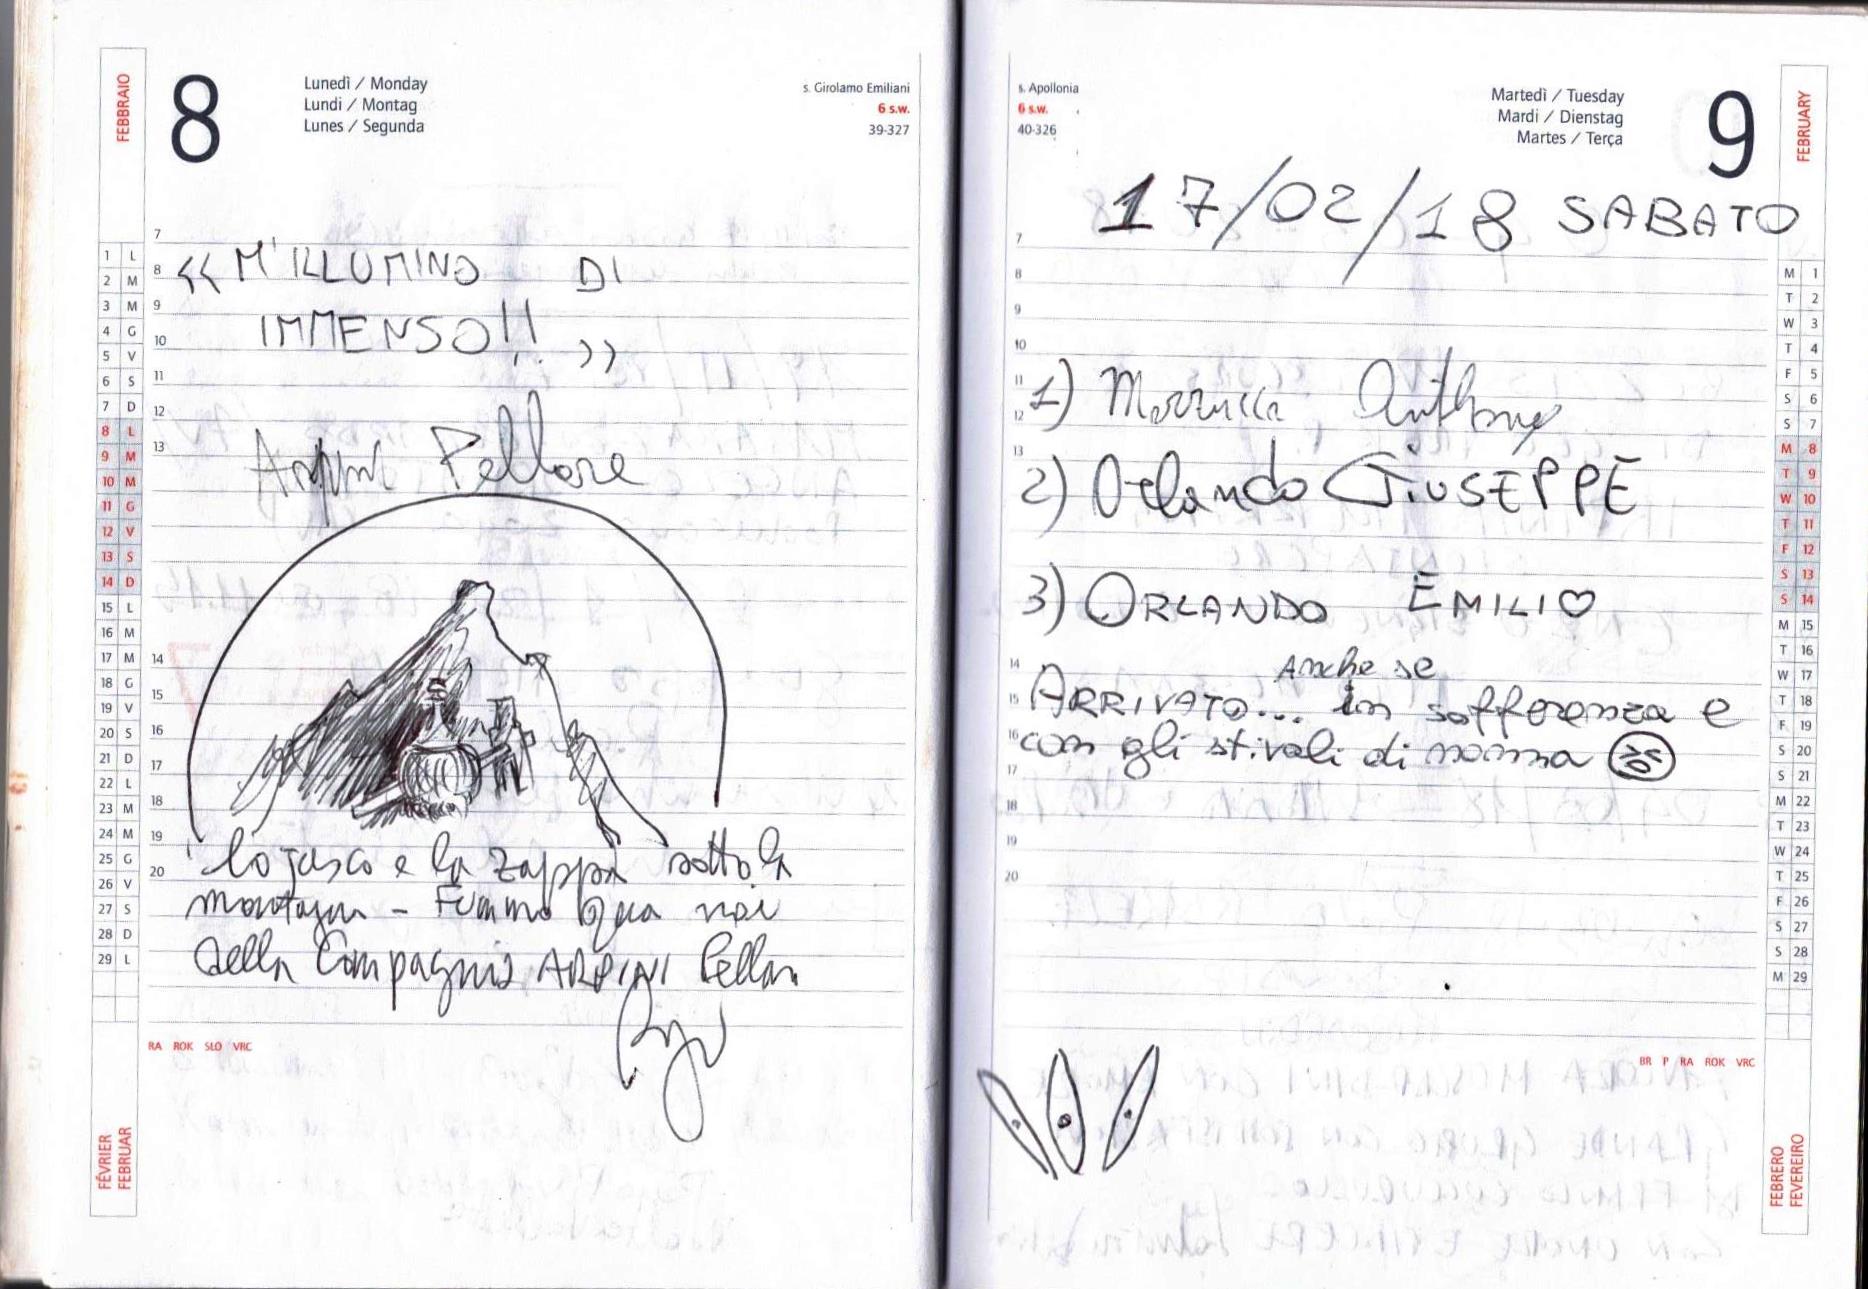 FEBBRAIO
8
Lunedì / Monday
Lundi / Montag
Lunes / Segunda
s. Girolamo Emiliani
6 s.w.
39-327
7
8
9
10
11
12
13
14
15
16
17
18
19
20
<< M'ILLUMINO DI
IMMENSO!! >>
Pellare
lo fusco e la zappa sotto la
montagna - Fummo qua noi
della Compagnia ARPINI
1 L
2 M
3 M
4 G
5 V
6 S
7 D
8 L
9 M
10 M
11 G
12 V
13 S
14 D
15 L
16 M
17 M
18 G
19 V
20 S
21 D
22 L
23 M
24 M
25 G
26 V
27 S
28 D
29 L
RA ROK SLO VRC
FÉVRIER
FEBRUAR
s. Apollonia
6 s.w.
40-326
Martedì / Tuesday
Mardi / Dienstag
Martes / Terça
9
FEBRUARY
17/02/18 SABATO
7
8
9
10
11
12
13
14
15
16
17
18
19
20
1) Anthony
2) Orlando GIUSEPPE
3) ORLANDO EMILIO
Anche se
ARRIVATO... in sofferenza e
con gli stivali di nonna
M 1
T 2
W 3
T 4
F 5
S 6
S 7
M 8
T 9
W 10
T 11
F 12
S 13
S 14
M 15
T 16
W 17
T 18
F 19
S 20
S 21
M 22
T 23
W 24
T 25
F 26
S 27
S 28
M 29
BR P RA ROK VRC
FEBRERO
FEVEREIRO